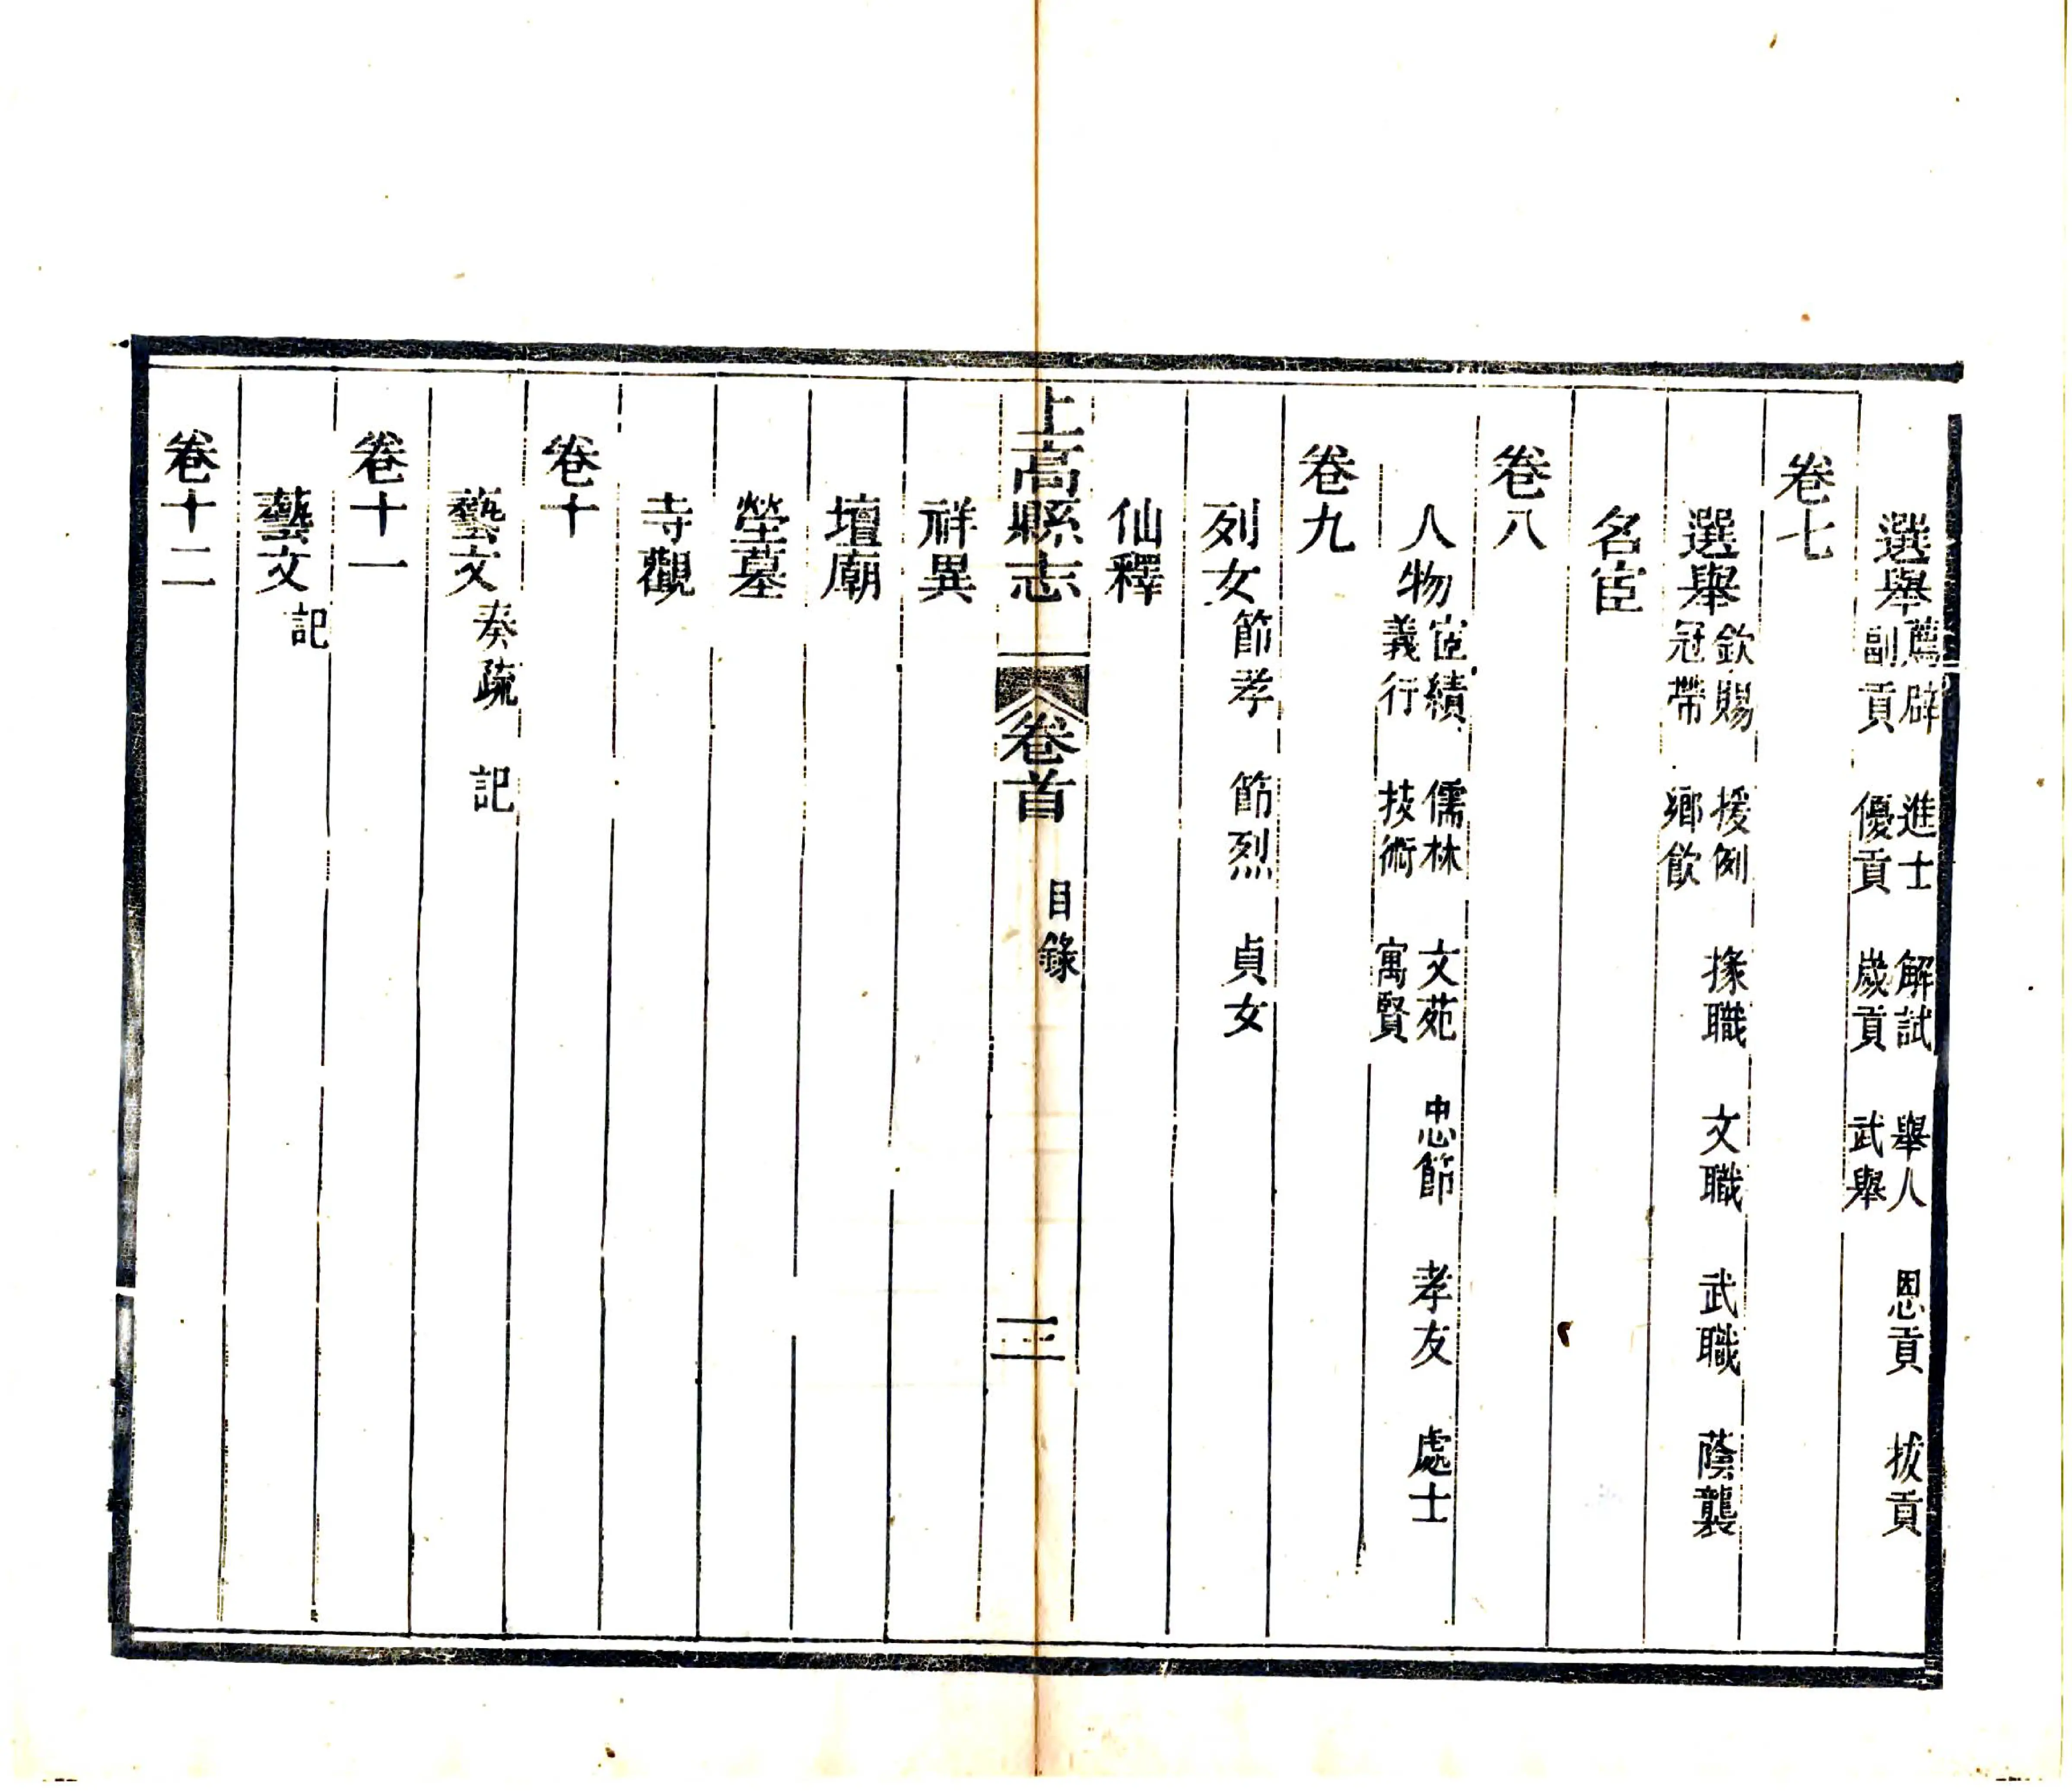 選舉薦辟 進士 解試 舉人 恩貢 拔貢
副貢 優貢 歲貢 武舉
卷七
選舉欽賜 援例 掾職 文職 武職 蔭襲
冠帶 鄉飲
名宦
卷八
人物宦績 儒林 文苑 忠節 孝友 處士
義行 技術 寓賢
卷九
列女節孝 節烈 貞女
仙釋
上高縣志 卷首 目錄 三
祥異
壇廟
塋墓
寺觀
卷十
藝文奏疏 記
卷十一
藝文記
卷十二